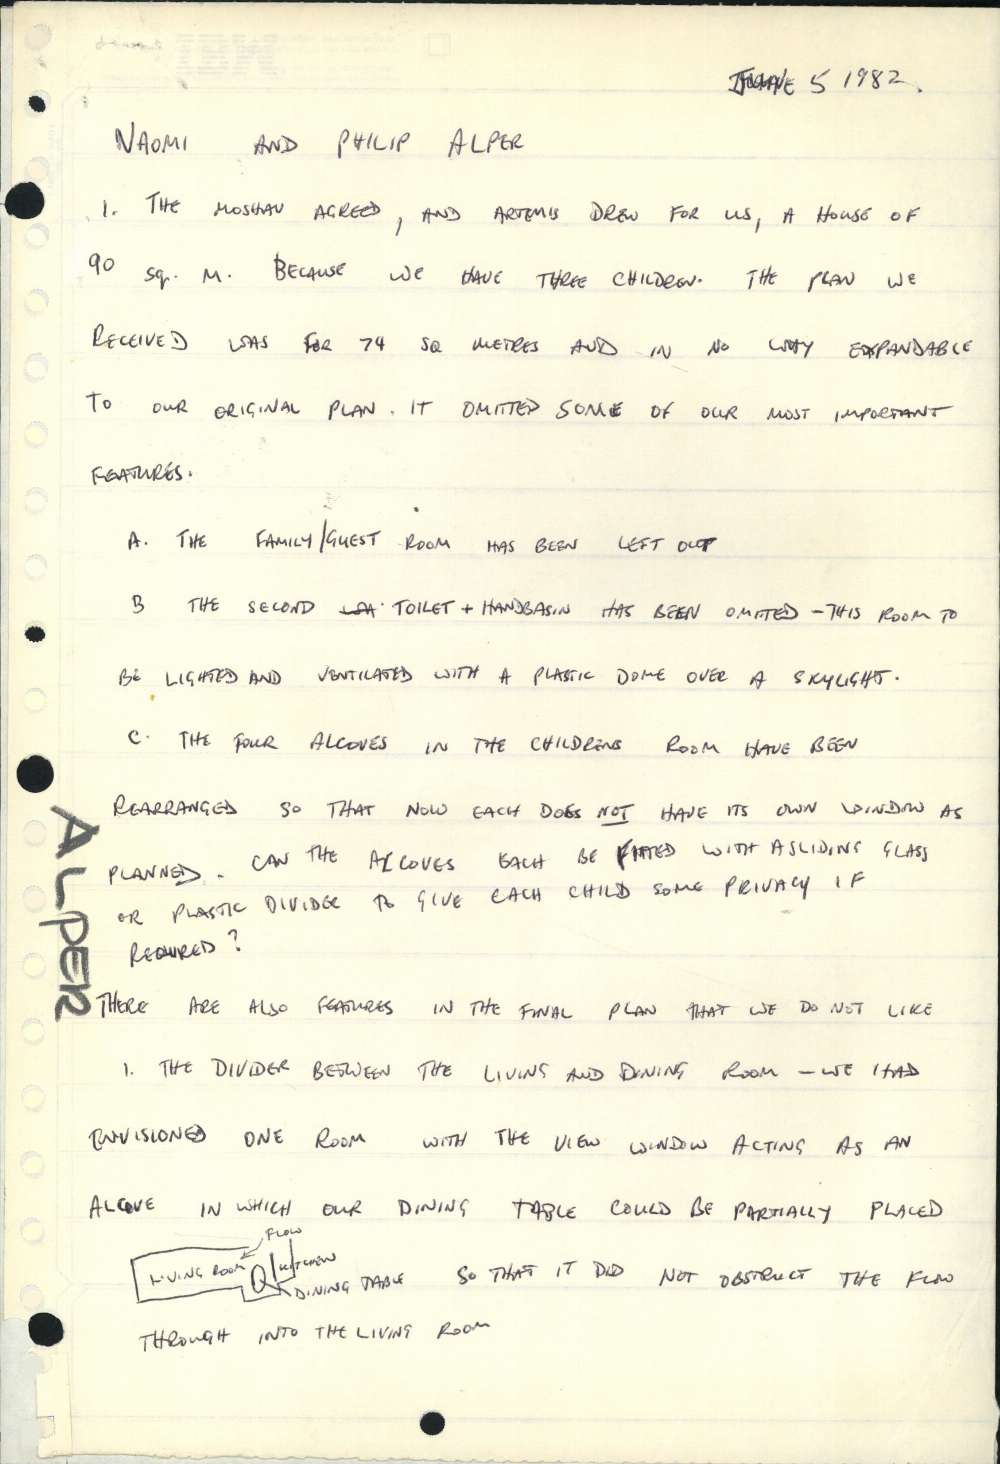 JUNE 5 1982.
NAOMI AND PHILIP ALPER
1. THE MOSHAV AGREED, AND ARTEMIS DREW FOR US, A HOUSE OF
90 sq. M. BECAUSE WE HAVE THREE CHILDREN. THE PLAN WE
RECEIVED WAS FOR 74 SQ METRES AND IN NO WAY EXPANDABLE
TO OUR ORIGINAL PLAN. IT OMITTED SOME OF OUR MOST IMPORTANT
FEATURES.
A. THE FAMILY/GUEST ROOM HAS BEEN LEFT OUT
B THE SECOND TOILET + HANDBASIN HAS BEEN OMITTED - THIS ROOM TO
BE LIGHTED AND VENTILATED WITH A PLASTIC DOME OVER A SKYLIGHT.
C. THE FOUR ALCOVES IN THE CHILDRENS ROOM HAVE BEEN
REARRANGED SO THAT NOW EACH DOES NOT HAVE ITS OWN WINDOW AS
PLANNED. CAN THE ALCOVES EACH BE FITTED WITH A SLIDING GLASS
OR PLASTIC DIVIDER TO GIVE EACH CHILD SOME PRIVACY IF
REQUIRED?
ALPER
THERE ARE ALSO FEATURES IN THE FINAL PLAN THAT WE DO NOT LIKE
1. THE DIVIDER BETWEEN THE LIVING AND DINING ROOM - WE HAD
ENVISIONED ONE ROOM WITH THE VIEW WINDOW ACTING AS AN
ALCOVE IN WHICH OUR DINING TABLE COULD BE PARTIALLY PLACED
FLOW
LIVING ROOM KITCHEN
DINING TABLE SO THAT IT DID NOT OBSTRUCT THE FLOW
THROUGH INTO THE LIVING ROOM